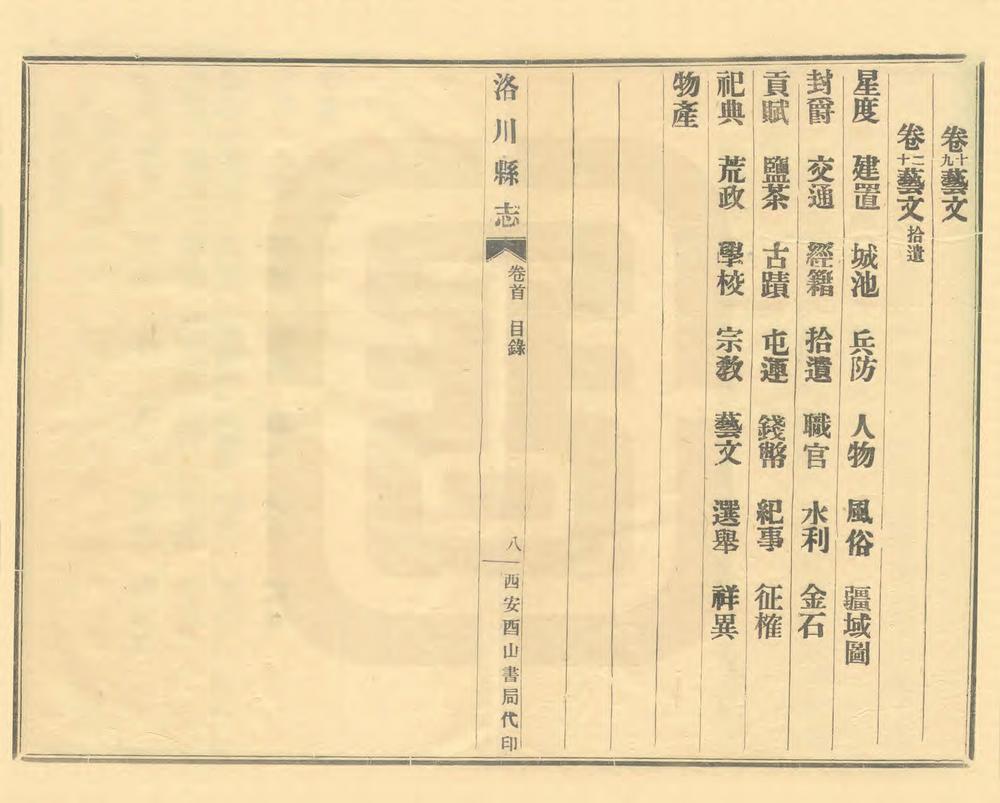 卷十九藝文
卷二十藝文拾遺
星度 建置 城池 兵防 人物 風俗 疆域圖
封爵 交通 經籍 拾遺 職官 水利 金石
貢賦 鹽茶 古蹟 屯運 錢幣 紀事 征榷
祀典 荒政 學校 宗教 藝文 選舉 祥異
物產
洛川縣志
卷首 目錄
八
西安酉山書局代印